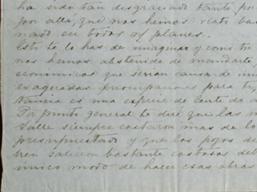 ha sido tan desgraciado tanto, po
por alla, que nos hemos visto
en todos os planes.
Esto te lo has de imaginar y como tu
nos hemos abstenido de mandarte
economicas que serian causa de
exageradas preocupaciones para ti,
es una especie de
punto general te diré que las
Valle siempre costaron mas de lo
presupuestado y que los pozos de
bien salieron bastante costosos del
unico modo de hacer esas obras